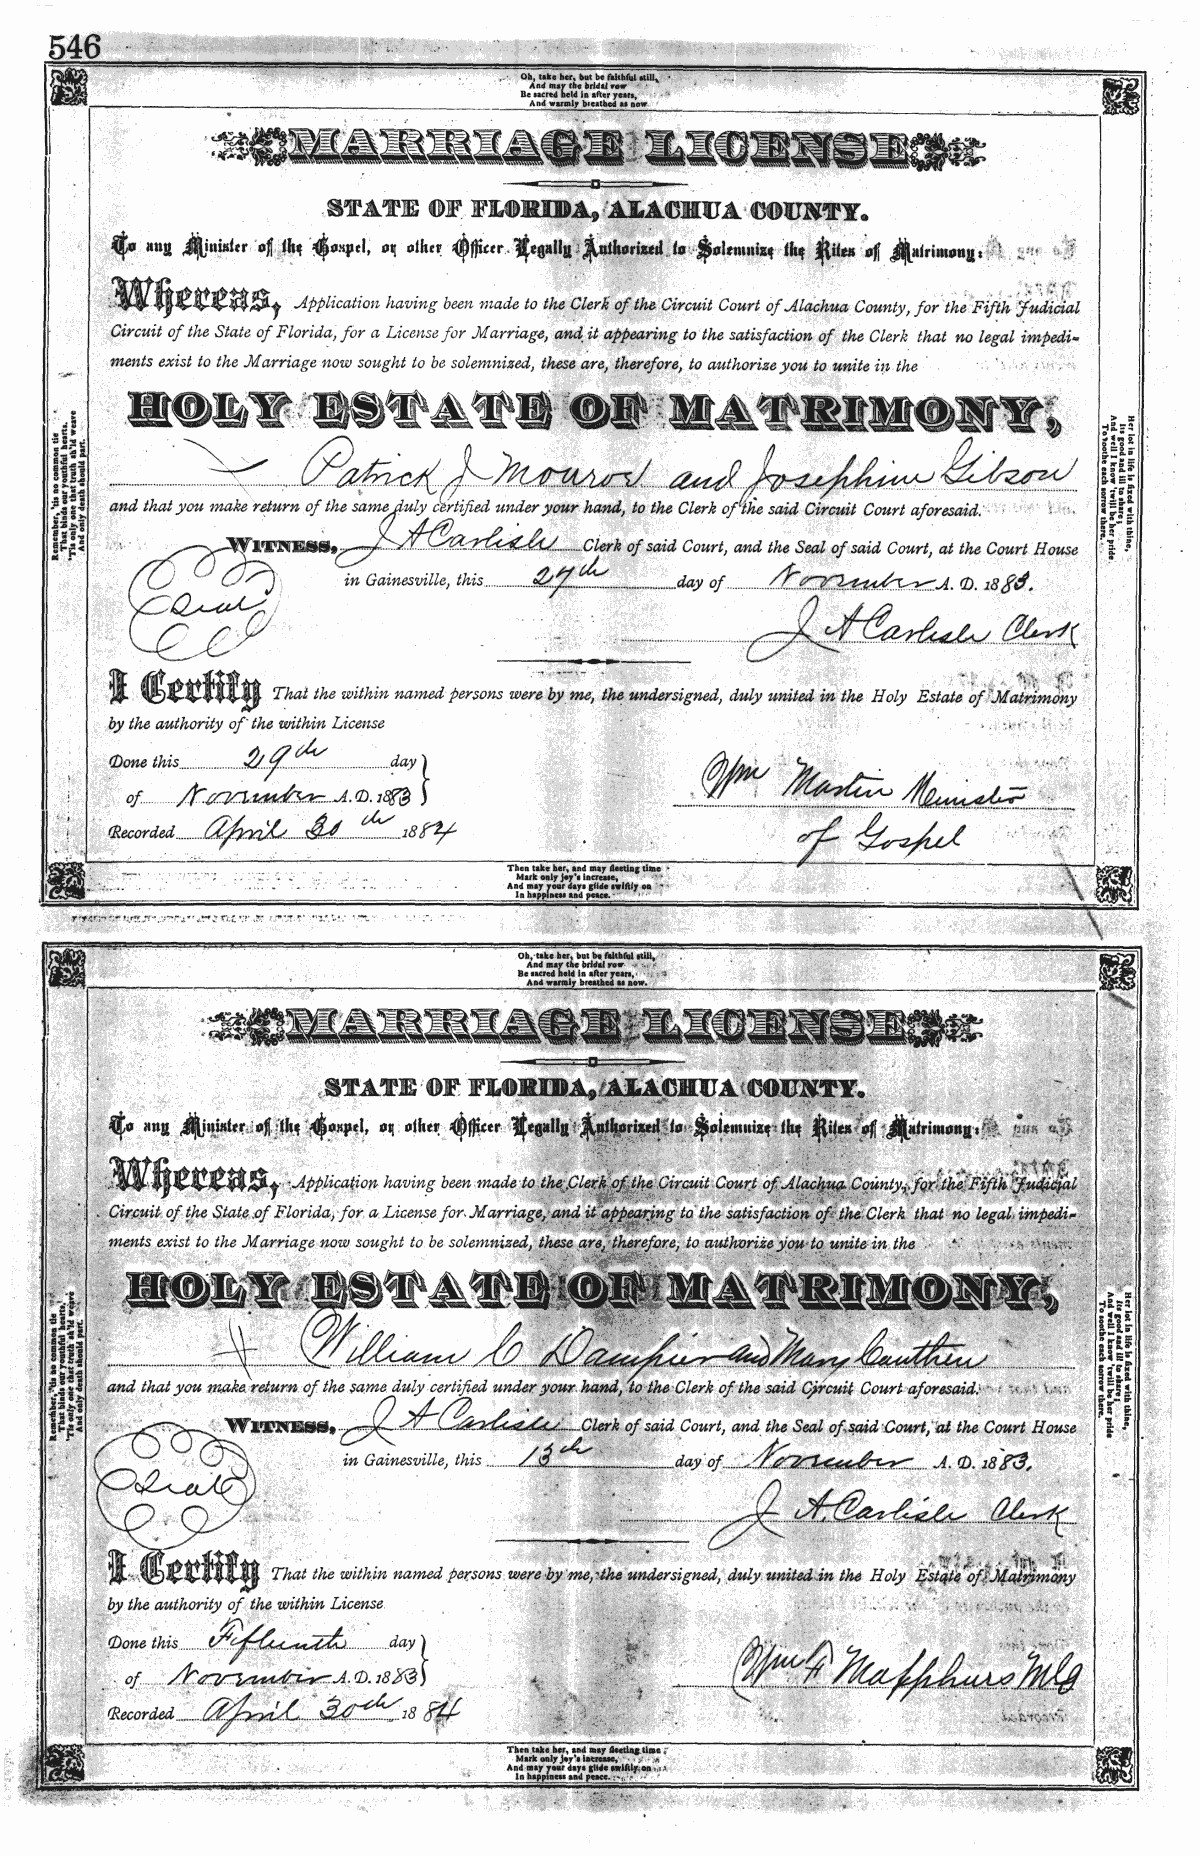 546
Oh, take her, but be faithful still,
And may the bridal vow
Be sacred held in after years,
And warmly breathed as now.
MARRIAGE LICENSE
STATE OF FLORIDA, ALACHUA COUNTY.
To any Minister of the Gospel, or other Officer Legally Authorized to Solemnize the Rites of Matrimony:
Whereas, Application having been made to the Clerk of the Circuit Court of Alachua County, for the Fifth Judicial
Circuit of the State of Florida, for a License for Marriage, and it appearing to the satisfaction of the Clerk that no legal impedi-
ments exist to the Marriage now sought to be solemnized, these are, therefore, to authorize you to unite in the
HOLY ESTATE OF MATRIMONY,
Patrick J Monroe and Josephine Gibson
and that you make return of the same duly certified under your hand, to the Clerk of the said Circuit Court aforesaid.
WITNESS, J A Carlisle Clerk of said Court, and the Seal of said Court, at the Court House
in Gainesville, this 27th day of November A. D. 1883.
Seal
J A Carlisle Clerk
I Certify That the within named persons were by me, the undersigned, duly united in the Holy Estate of Matrimony
by the authority of the within License
Done this 29th day
of November A. D. 1883
Recorded April 30th 1884
Wm Martin Minister
of Gospel
Remember, 'tis no common tie
That binds our youthful hearts,
'Tis only one that truth sh'ld weave
And only death should part.
Her lot in life is fixed with thine,
Its good and ill to share;
And well I know 'twill be her pride
To soothe each sorrow there.
Then take her, and may fleeting time
Mark only joy's increase,
And may your days glide swiftly on
In happiness and peace.
Oh, take her, but be faithful still,
And may the bridal vow
Be sacred held in after years,
And warmly breathed as now.
MARRIAGE LICENSE
STATE OF FLORIDA, ALACHUA COUNTY.
To any Minister of the Gospel, or other Officer Legally Authorized to Solemnize the Rites of Matrimony:
Whereas, Application having been made to the Clerk of the Circuit Court of Alachua County, for the Fifth Judicial
Circuit of the State of Florida, for a License for Marriage, and it appearing to the satisfaction of the Clerk that no legal impedi-
ments exist to the Marriage now sought to be solemnized, these are, therefore, to authorize you to unite in the
HOLY ESTATE OF MATRIMONY,
William C Dampier and Mary Cauthen
and that you make return of the same duly certified under your hand, to the Clerk of the said Circuit Court aforesaid.
WITNESS, J A Carlisle Clerk of said Court, and the Seal of said Court, at the Court House
in Gainesville, this 13th day of November A. D. 1883.
Seal
J A. Carlisle Clerk
I Certify That the within named persons were by me, the undersigned, duly united in the Holy Estate of Matrimony
by the authority of the within License
Done this Fifteenth day
of November A. D. 1883
Recorded April 30th 1884
Wm F Mapphurs MG
Remember, 'tis no common tie
That binds our youthful hearts,
'Tis only one that truth sh'ld weave
And only death should part.
Her lot in life is fixed with thine,
its good and ill to share;
And well I know 'twill be her pride
To soothe each sorrow there.
Then take her, and may fleeting time
Mark only joy's increase,
And may your days glide swiftly on
In happiness and peace.